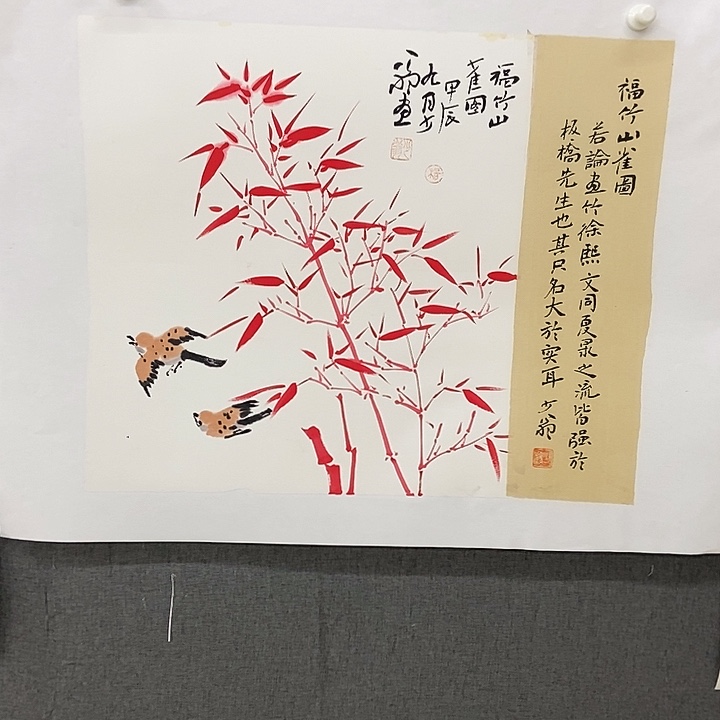 福竹山雀圖
若論畫竹徐熙文同夏㫤之流皆强於
板橋先生也其只名大於实耳 少翁
福竹山
雀图
甲辰
九月少
翁画